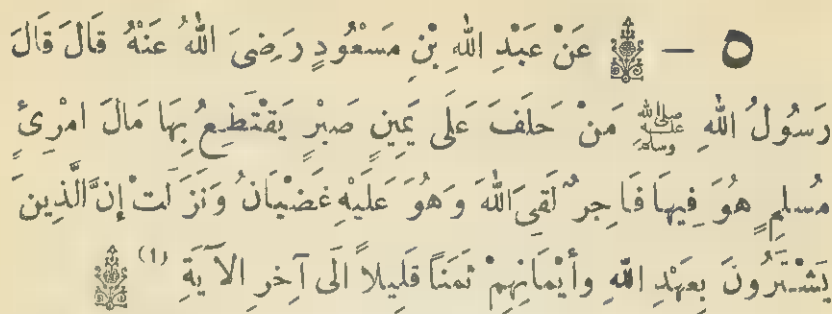 ٥ – عَنْ عَبْدِ اللهِ بْنِ مَسْعُودٍ رَضِىَ اللهُ عَنْهُ قَالَ قَالَ
رَسُولُ اللهِ ﷺ مَنْ حَلَفَ عَلَى يَمِينٍ صَبْرٍ يَقْتَطِعُ بِهَا مَالَ امْرِئٍ
مُسلِمٍ هُوَ فِيهَا فَاجِرٌ لَقِىَ اللهَ وَهُوَ عَلَيْهِ غَضْبَانُ وَنَزَلَتْ إِنَّ الَّذِينَ
يَشْتَرُونَ بِعَهْدِ اللهِ وأَيْمَانِهِمْ ثَمَنًا قَلِيلاً الَى آخِرِ الآيَةِ (١)